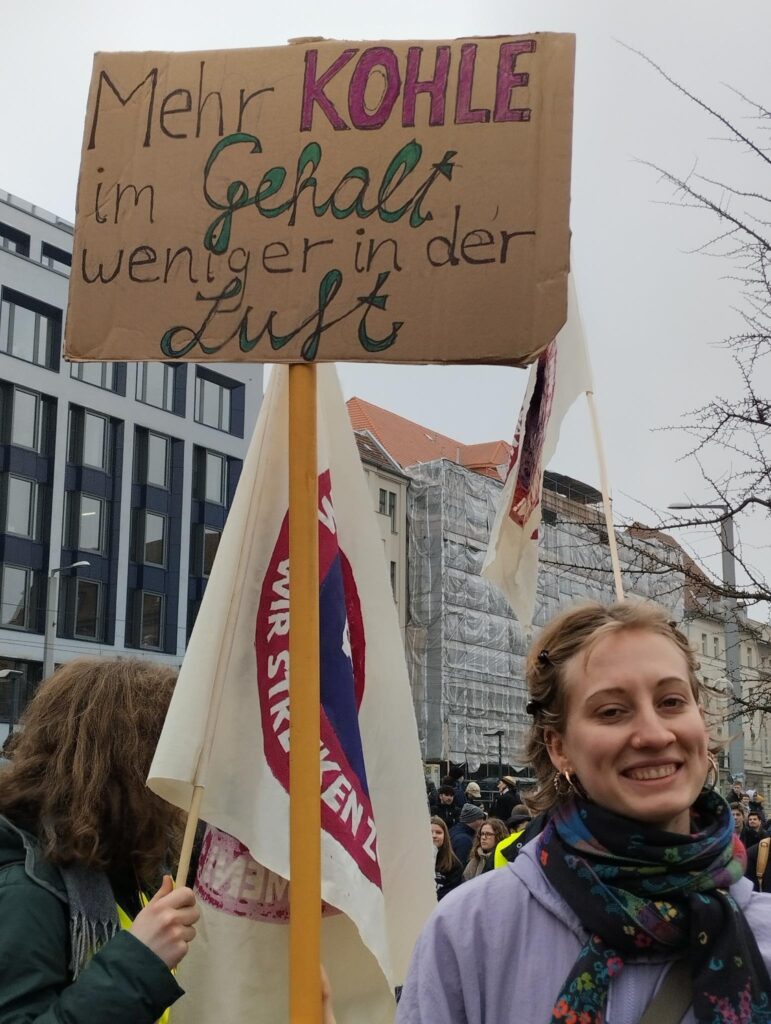 Mehr KOHLE
im Gehalt
weniger in der
Luft
WIR STREIKEN Z
MEN